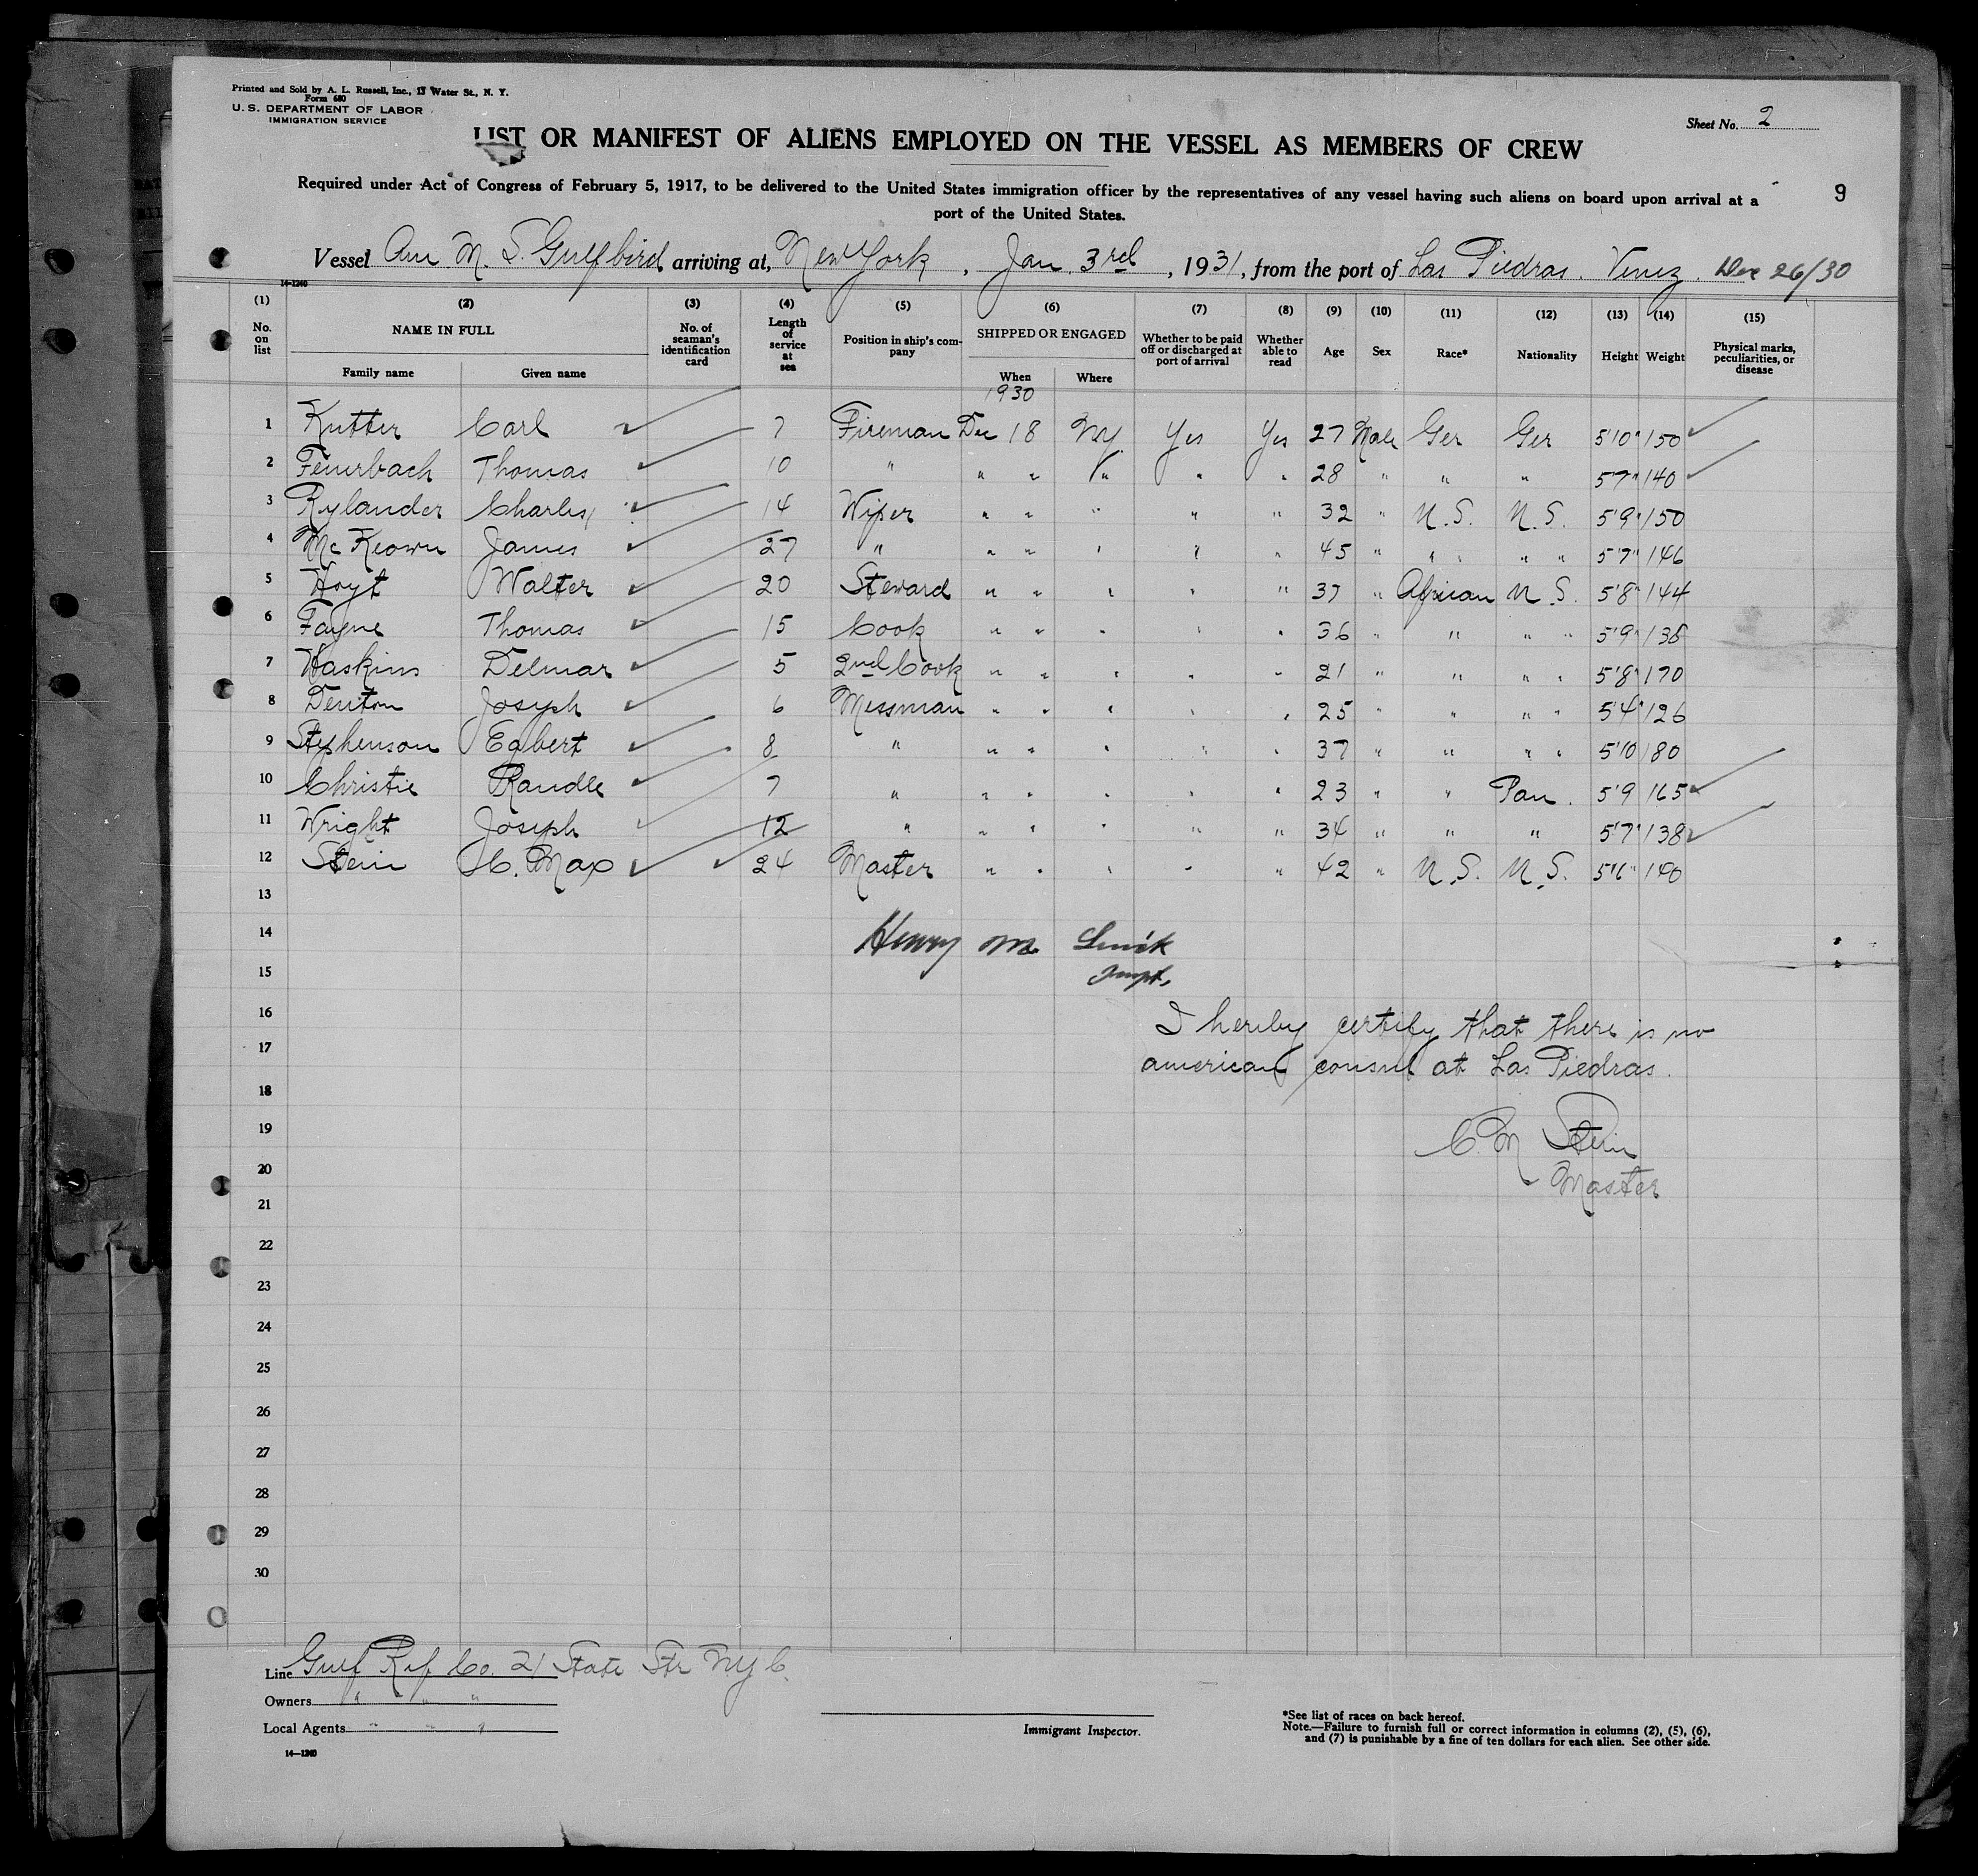 Printed and Sold by A. L. Russell, Inc., 17 Water St., N. Y.
Form 680
U. S. DEPARTMENT OF LABOR
IMMIGRATION SERVICE
Sheet No. 2
LIST OR MANIFEST OF ALIENS EMPLOYED ON THE VESSEL AS MEMBERS OF CREW
Required under Act of Congress of February 5, 1917, to be delivered to the United States immigration officer by the representatives of any vessel having such aliens on board upon arrival at a
port of the United States.
9
Vessel Am. M. S. Gulfbird arriving at, New York, Jan 3rd, 1931, from the port of Las Piedras. Venez. Dec 26/30
14-1240
(1) (2) (3) (4) (5) (6) (7) (8) (9) (10) (11) (12) (13) (14) (15)
No. on list NAME IN FULL Family name Given name No. of seaman's identification card Length of service at sea Position in ship's company SHIPPED OR ENGAGED When Where Whether to be paid off or discharged at port of arrival Whether able to read Age Sex Race* Nationality Height Weight Physical marks, peculiarities, or disease
1930
1 Kutter Carl 7 Fireman Dec 18 NY. Yes Yes 27 Male Ger Ger 5'10" 150
2 Feuerbach Thomas 10 " " " " " " 28 " " " 5'7" 140
3 Rylander Charles 14 Wiper " " " " " 32 " U.S. U.S. 5'9" 150
4 McKeown James 27 " " " " " " 45 " " " " " 5'7" 146
5 Hoyt Walter 20 Steward " " " " " 37 " African U.S. 5'8" 144
6 Fayne Thomas 15 Cook " " " " " 36 " " " " 5'9" 135
7 Haskins Delmar 5 2nd Cook " " " " " 21 " " " " 5'8" 170
8 Denton Joseph 6 Messman " " " " " 25 " " " " 5'4" 126
9 Stephenson Egbert 8 " " " " " " 37 " " " " 5'10 180
10 Christie Randle 7 " " " " " " 23 " " Pan. 5'9 165
11 Wright Joseph 12 " " " " " " 34 " " " 5'7" 138
12 Stein C. Max 24 Master " " " " " 42 " U.S. U.S. 5'6" 140
13
14 Henry M.
15 Inspt.
16 I hereby certify that there is no
17 american consul at Las Piedras.
18
19 C. M Stein
20 Master
21
22
23
24
25
26
27
28
29
30
Line Gulf Ref Co. 21 State Str NYC.
Owners " " "
Local Agents " " "
14—1240
Immigrant Inspector.
*See list of races on back hereof.
Note.—Failure to furnish full or correct information in columns (2), (5), (6),
and (7) is punishable by a fine of ten dollars for each alien. See other side.